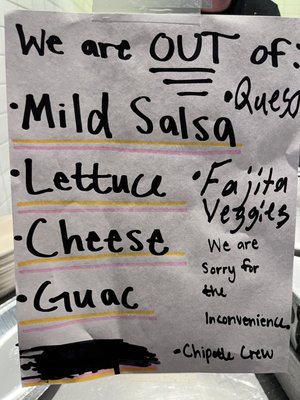 We are OUT of:
•Queso
•Mild Salsa
•Lettuce
•Fajita
Veggies
•Cheese
•Guac
We are
Sorry for
the
Inconvenience.
-Chipotle Crew